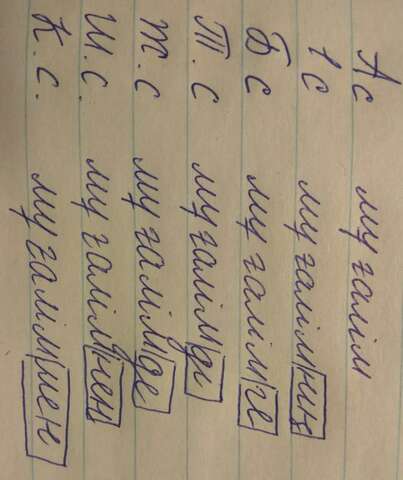 А с мұғалім
І с мұғалімнің
Б с мұғалімге
Т. с мұғалімді
Ж. с мұғалімде
Ш. с. мұғалімнен
К. с. мұғаліммен